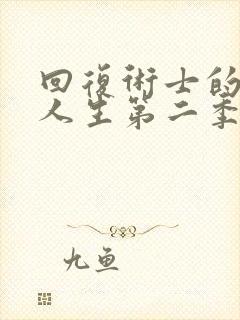 回復術士的
人生第二季
九鱼